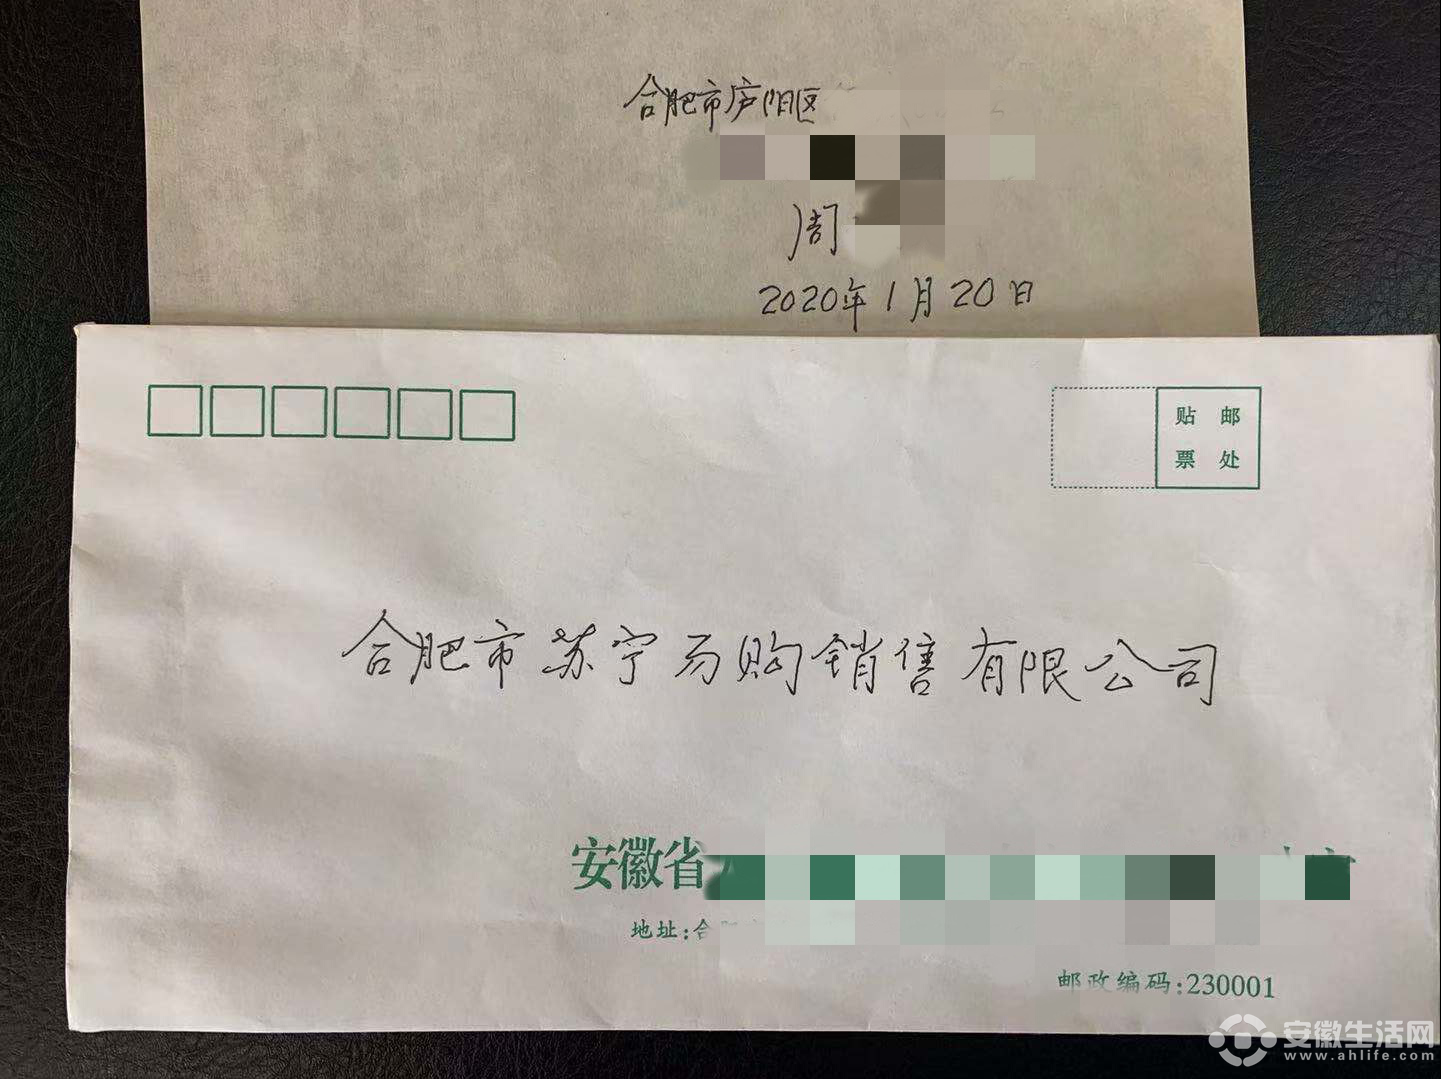 合肥市庐阳区
周
2020年1月20日
贴 邮
票 处
合肥市苏宁易购销售有限公司
安徽省
地址:合
邮政编码:230001
安徽生活网
www.ahlife.com